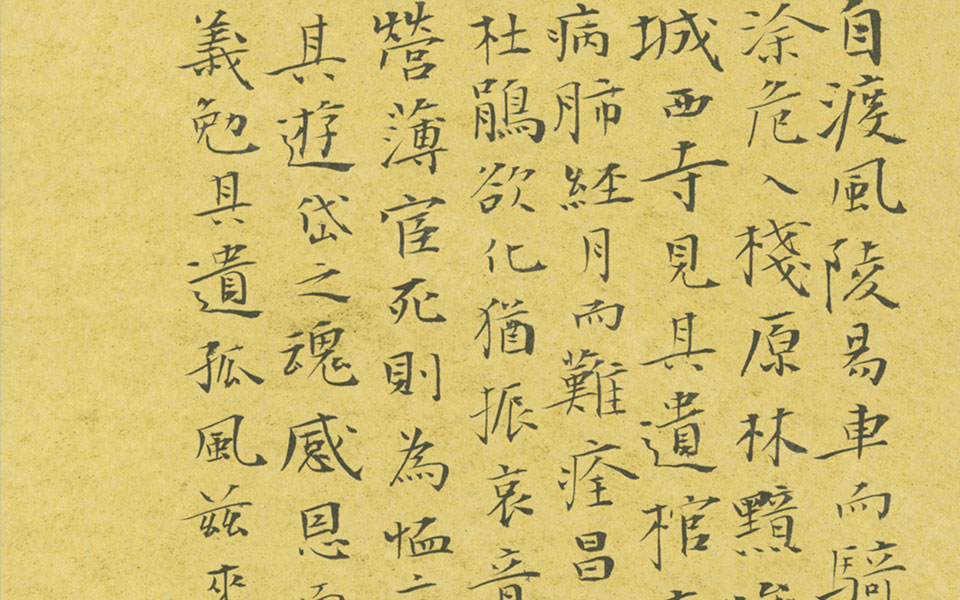 自渡風陵易車而騎
涂危入棧原林黯
城西寺見其遺棺
病肺経月而難痊昌
杜鵑欲化猶振哀音
營薄宦死則為恤
其遊岱之魂感恩
義勉其遺孤風茲來